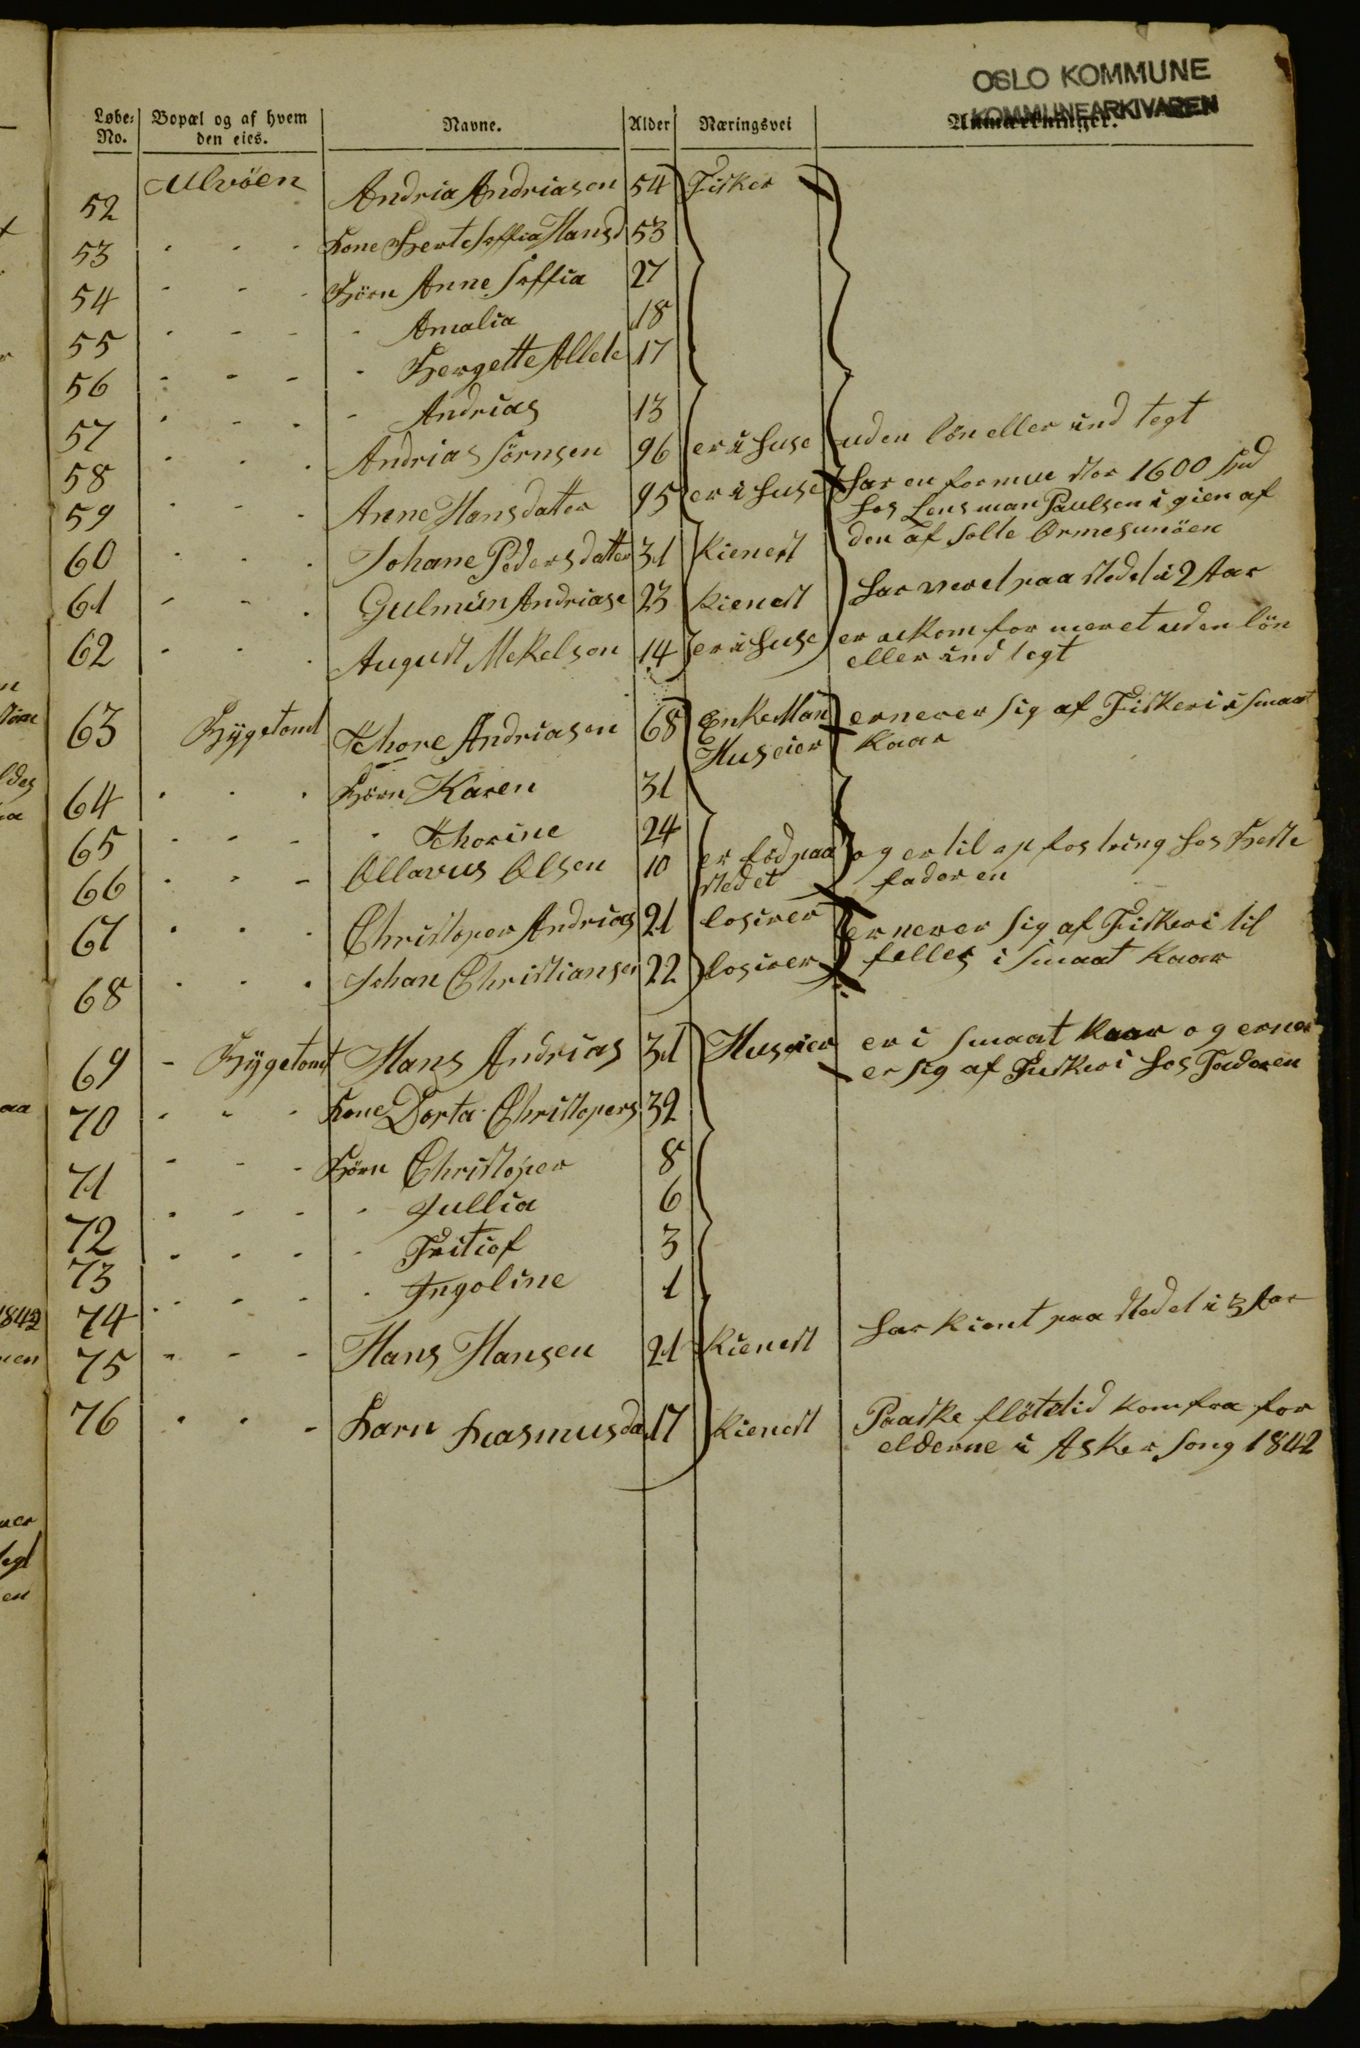 OSLO KOMMUNE
KOMMUNEARKIVAREN
Løbe-No. Bopæl og af hvem den eies. Navne. Alder Næringsvei Anmærkninger.
52 Ulvöen Andria Andriasen 54 Fisker
53 - - - Kone Berte Soffia Hansd 53
54 - - - Börn Anne Soffia 27
55 - - - - Amalia 18
56 - - - - Bergette Allete 17
57 - - - - Andrias 13
58 - - - Andrias Sörnsen 96 er i huse uden lön eller ind tegt
59 - - - Anne Hansdatter 95 er i huse har en formue stor 1600 Spd
hos Lensman Paulsen i gien af
60 - - - Johane Pedersdatter 31 tienest den af solte Ormesunöen
61 - - - Gulmin Andriase 23 tienest har veret paa stedet i 2 Aar
62 - - - August Mekelsen 14 er i huse er ukom for meret uden lön
eller ind tegt
63 Bygetomt Thore Andriasen 68 EnkeMan ernerer sig af Fiskeri i smaat
Huseier kaar
64 . . . Börn Karen 31
65 - - - - Thorine 24
66 - - - Ollavus Olsen 10 er föd paa og er til opfostring hos Beste
stedet faderen
67 . . . Christoper Andrias 21 losirer ernerer sig af Fiskeri til
68 . . . Johan Christiansen 22 losirer felles i smaat kaar
69 - Bygetomt Hans Andrias 31 Huseier er i smaat kaar og erner
er sig af Fiskeri hos Faderen
70 - - - Kone Dorta Christopers 32
71 - - - Börn Christoper 8
72 - - - - Jullia 6
73 - - - - Fritiof 3
74 - - - - Ingoline 1
75 - - - Hans Hansen 21 tienest har tient paa stedet i 3 Aar
76 . . - Karn Rasmusda 17 tienest Paaske flötetid kom fra for
elderne i Asker Song 1842